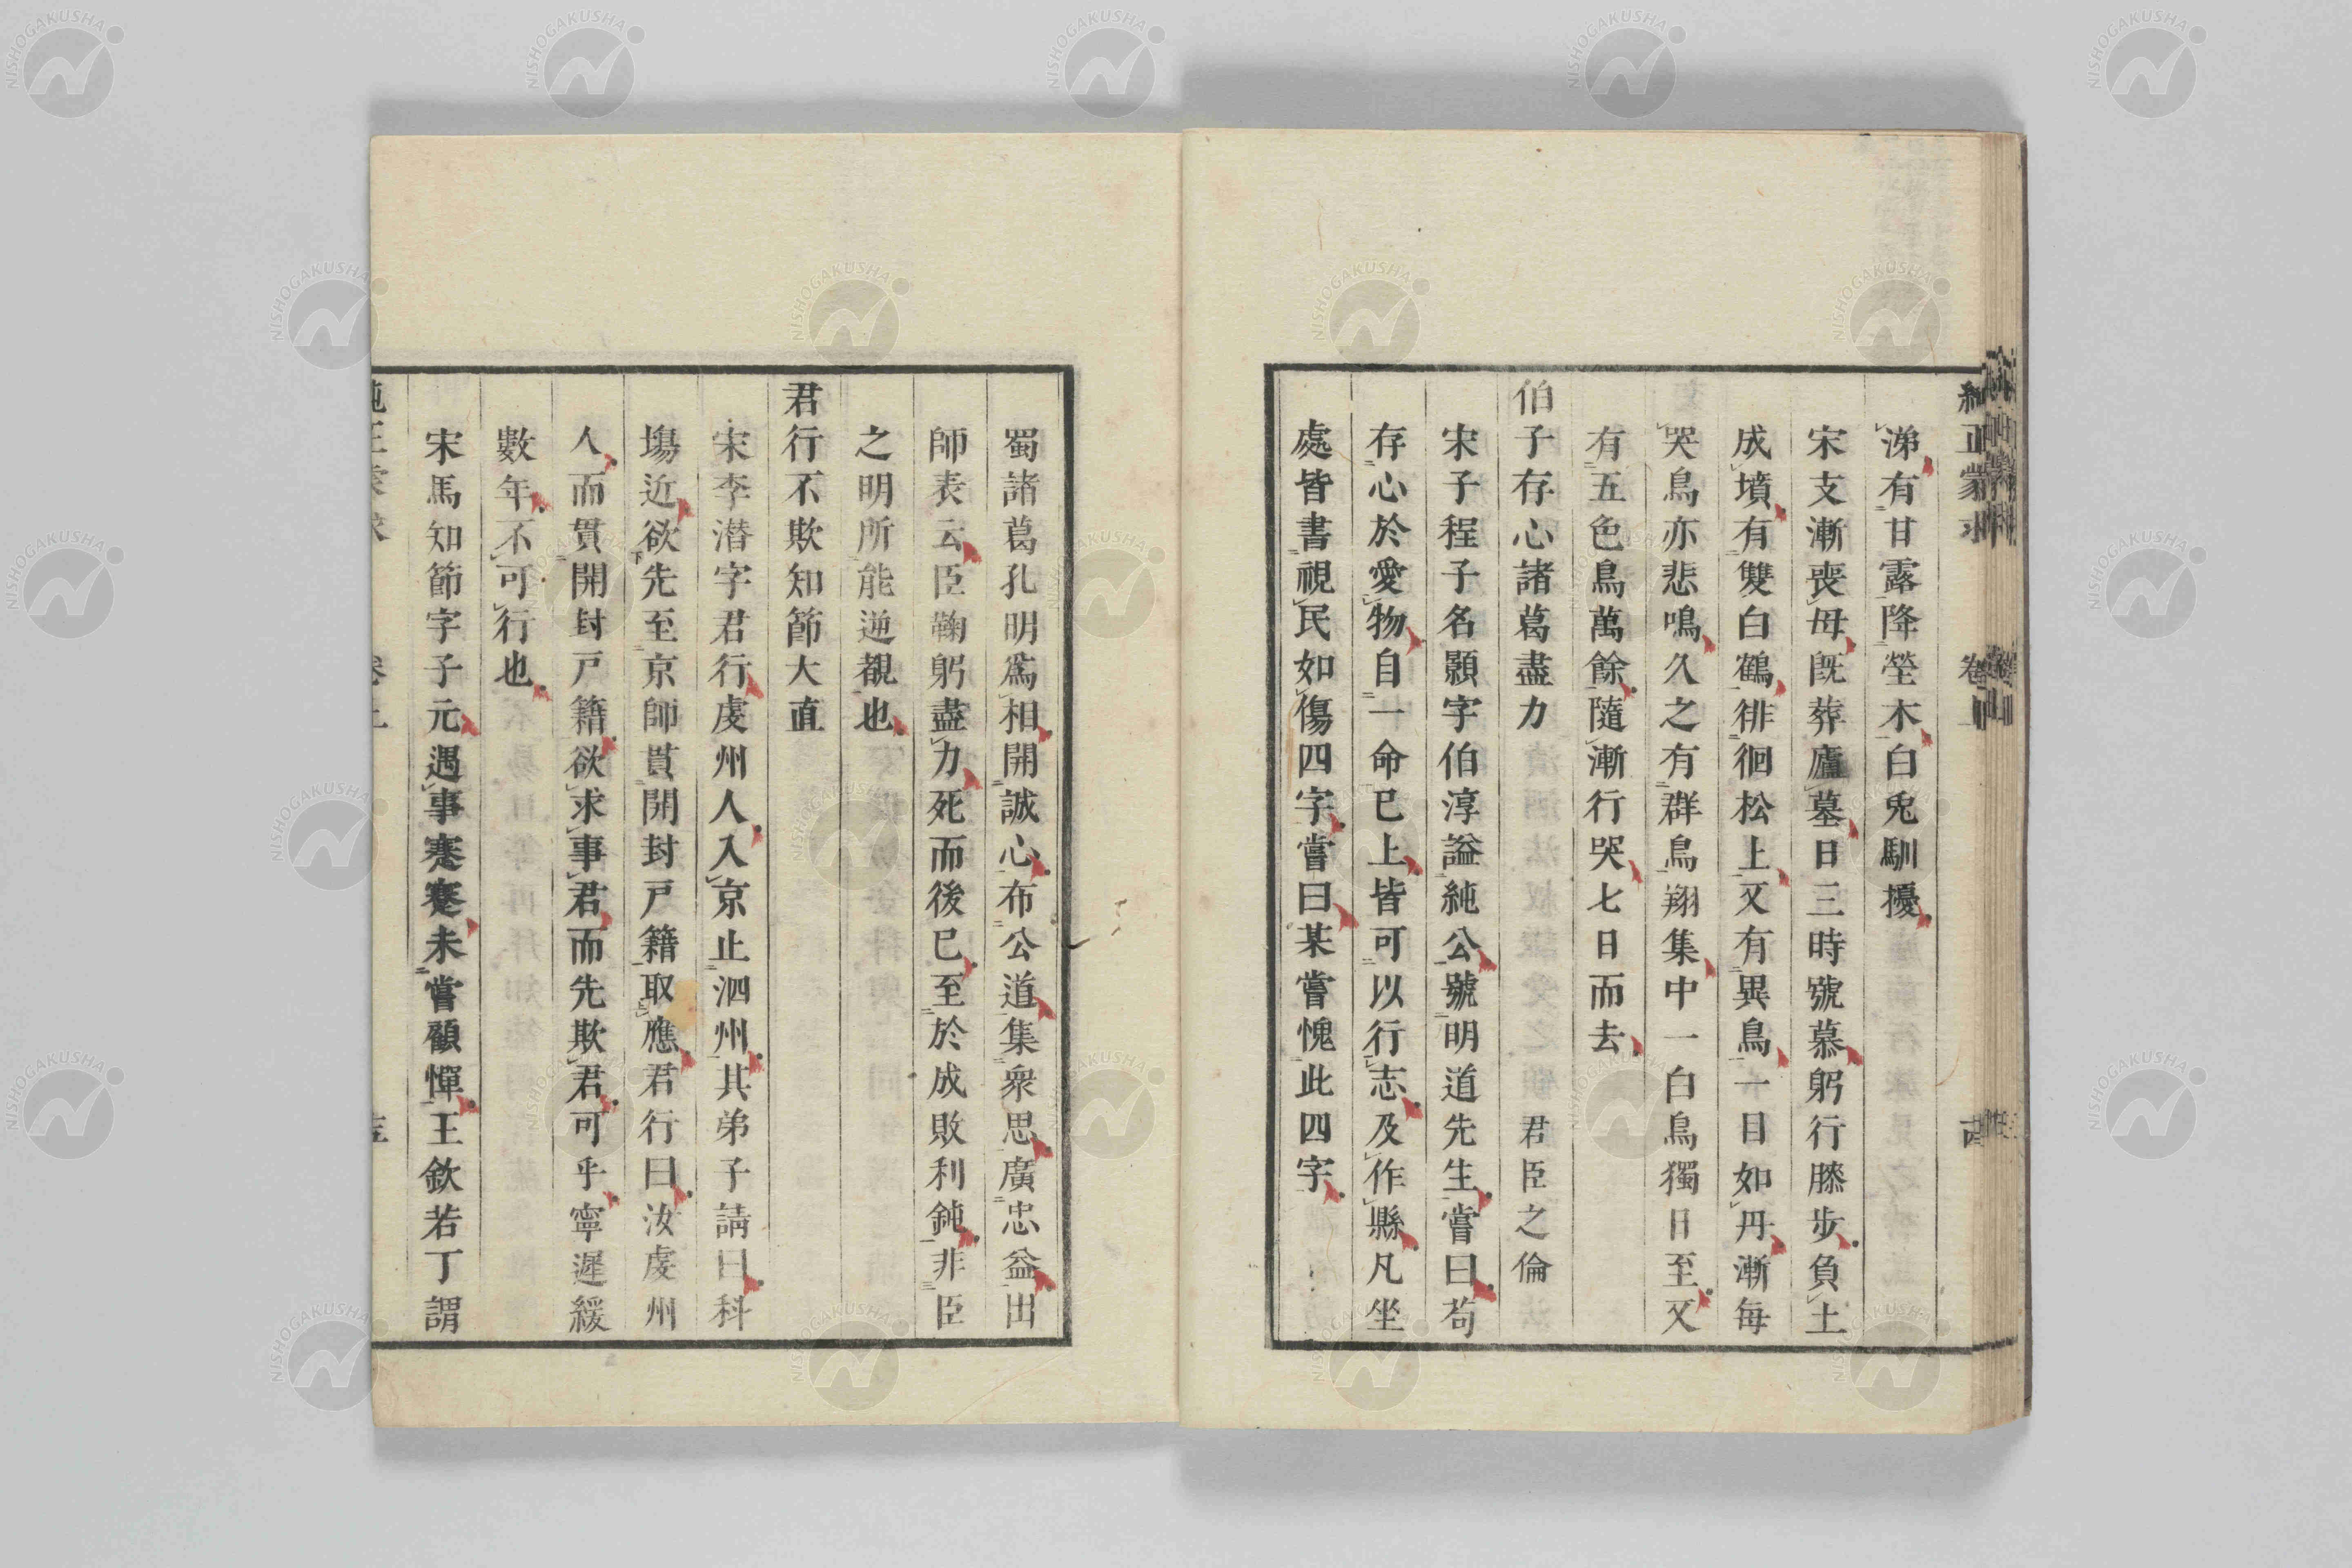 純正蒙求 卷上
涕有甘露降塋木白兎馴擾
宋支漸喪母既葬廬墓日三時號慕躬行膝步負土
成墳有雙白鶴徘徊松上又有異鳥一日如丹漸每
哭鳥亦悲鳴久之有群鳥翔集中一白鳥獨日至又
有五色鳥萬餘隨漸行哭七日而去
伯子存心諸葛盡力 君臣之倫
宋子程子名顥字伯淳謚純公號明道先生嘗曰苟
存心於愛物自一命已上皆可以行志及作縣凡坐
處皆書視民如傷四字嘗曰某嘗愧此四字
蜀諸葛孔明爲相開誠心布公道集衆思廣忠益出
師表云臣鞠躬盡力死而後已至於成敗利鈍非臣
之明所能逆覩也
君行不欺知節大直
宋李潜字君行虔州人入京止泗州其弟子請曰科
塲近欲先至京師貫開封戸籍取應君行曰汝虔州
人而貫開封戸籍欲求事君而先欺君可乎寧遲緩
數年不可行也
宋馬知節字子元遇事蹇蹇未嘗顧憚王欽若丁謂
NISHOGAKUSHA